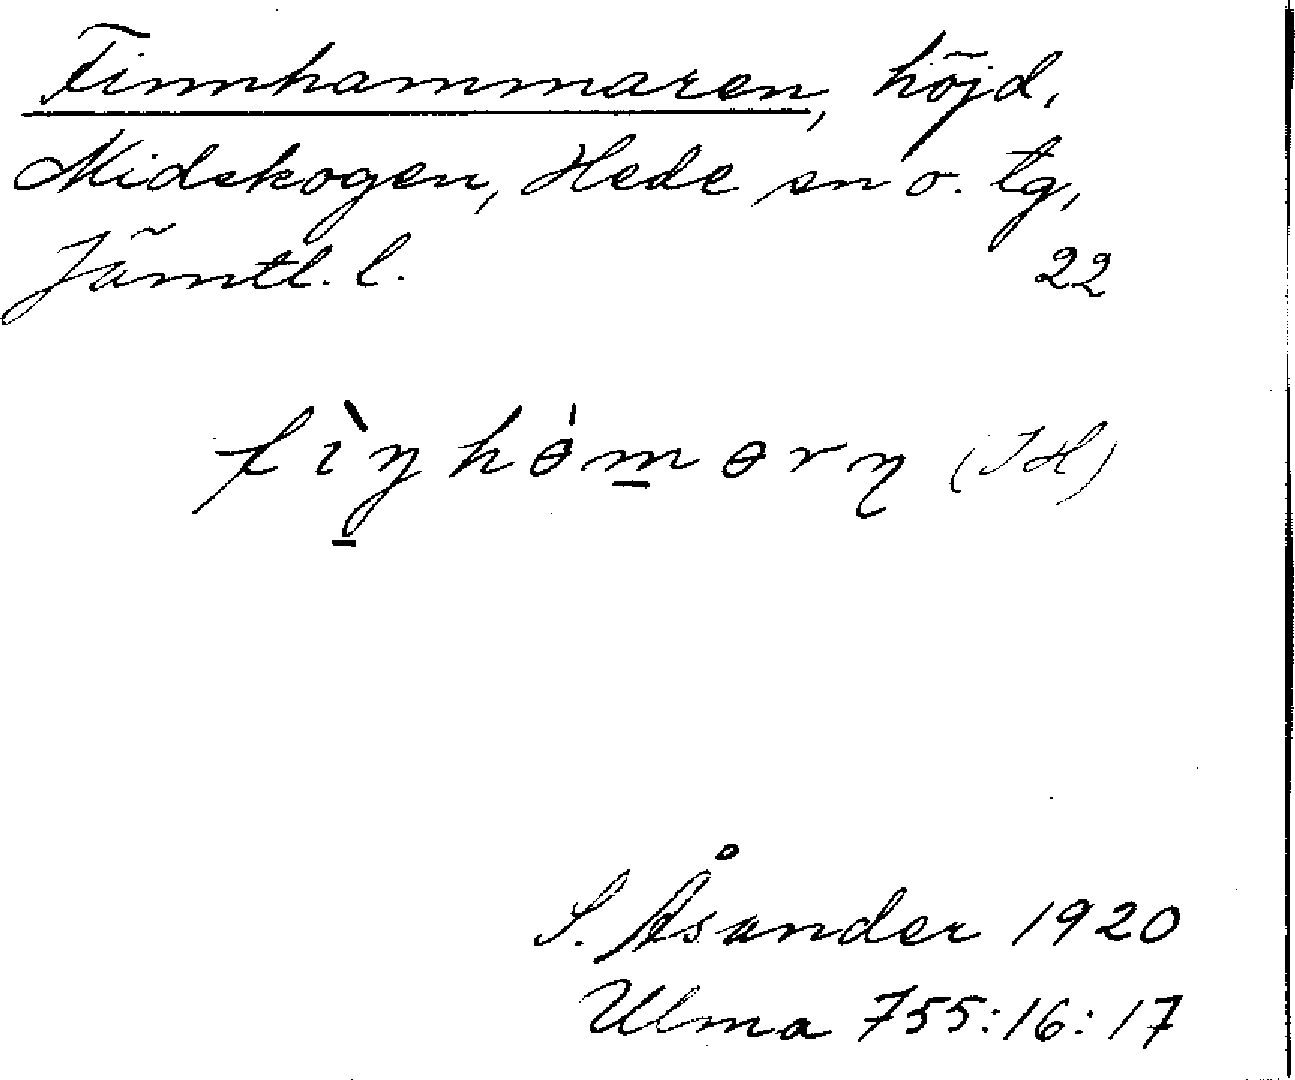 Finnhammaren, höjd,
Midskogen, Hede sn o. tg,
Jämtl. l. 22
fìŋhɵ́mɵrn̥ (JH)
S. Åsander 1920
Ulma 755:16:17